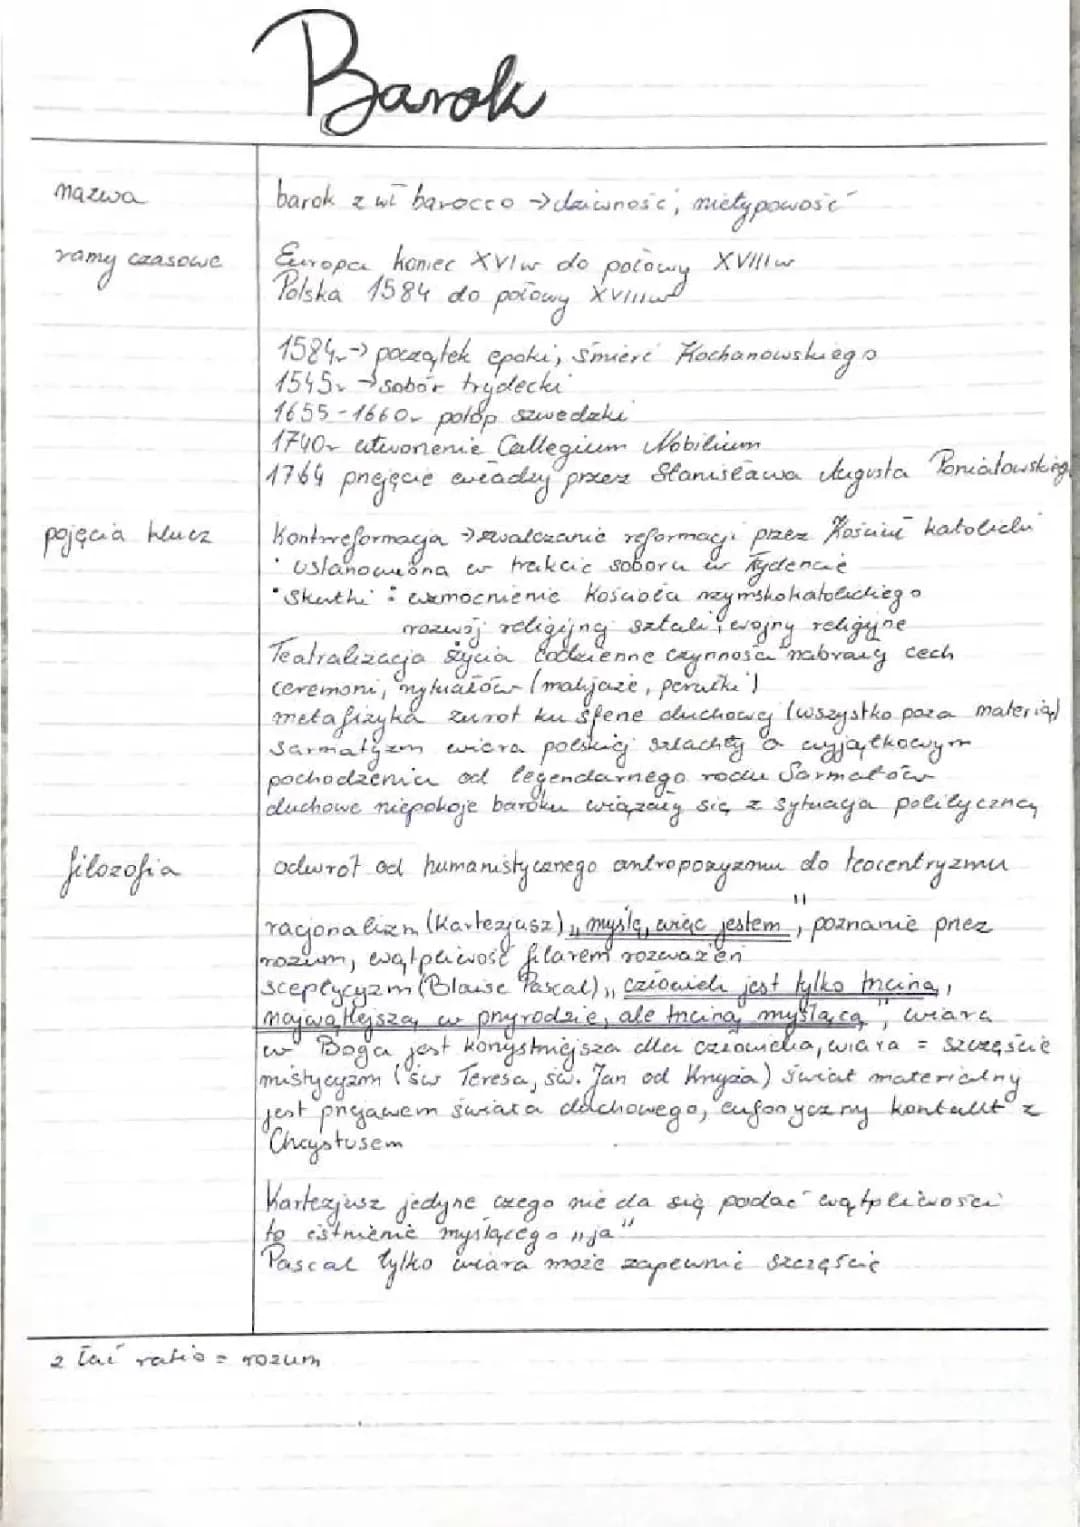 Barok
nazwa
barok z wł barocco → dziwność, nietypowość
ramy czasowe
Europa koniec XVIw do połowy XVIIIw
Polska 1584 do połowy XVIIIw
1584r → początek epoki, śmierć Kochanowskiego
1545r → sobór trydecki
1655-1660r potop szwedzki
1740r utworzenie Collegium Nobilium
1764 przejęcie władzy przez Stanisława Augusta Poniatowskiego
pojęcia klucz
Kontrreformacja → zwalczanie reformacji przez Kościół katolicki
• ustanowiona w trakcie soboru w Tydencie
• Skutki: wzmocnienie Kościoła rzymskokatolickiego
rozwój religijnej sztuki, wojny religijne
Teatralizacja życia codzienne czynności nabrały cech
ceremoni, rytuałów (makijaże, peruki)
metafizyka zwrot ku sferze duchowej (wszystko poza materią)
sarmatyzm wiara polskiej szlachty o wyjątkowym
pochodzeniu od legendarnego rodu Sarmatów
duchowe niepokoje baroku wiązały się z sytuacją polityczną
filozofia
odwrót od humanistycznego do teocentryzmu
racjonalizm (Kartezjusz) „myślę, więc jestem", poznanie przez
rozum, wątpliwość filarem rozważeń
sceptycyzm (Blaise Pascal) „człowiek jest tylko trzciną,
najwątlejszą w przyrodzie, ale trzciną myślącą", wiara
w Boga jest korzystniejsza dla człowieka, wiara = szczęście
mistycyzm (św Teresa, św. Jan od Krzyża) świat materialny
jest przejawem świata duchowego, kontakt z
Chrystusem
Kartezjusz jedyne czego nie da się podać wątpliwości
to istnienie myślącego „ja"
Pascal tylko wiara może zapewnić szczęście
z łać ratio = rozum